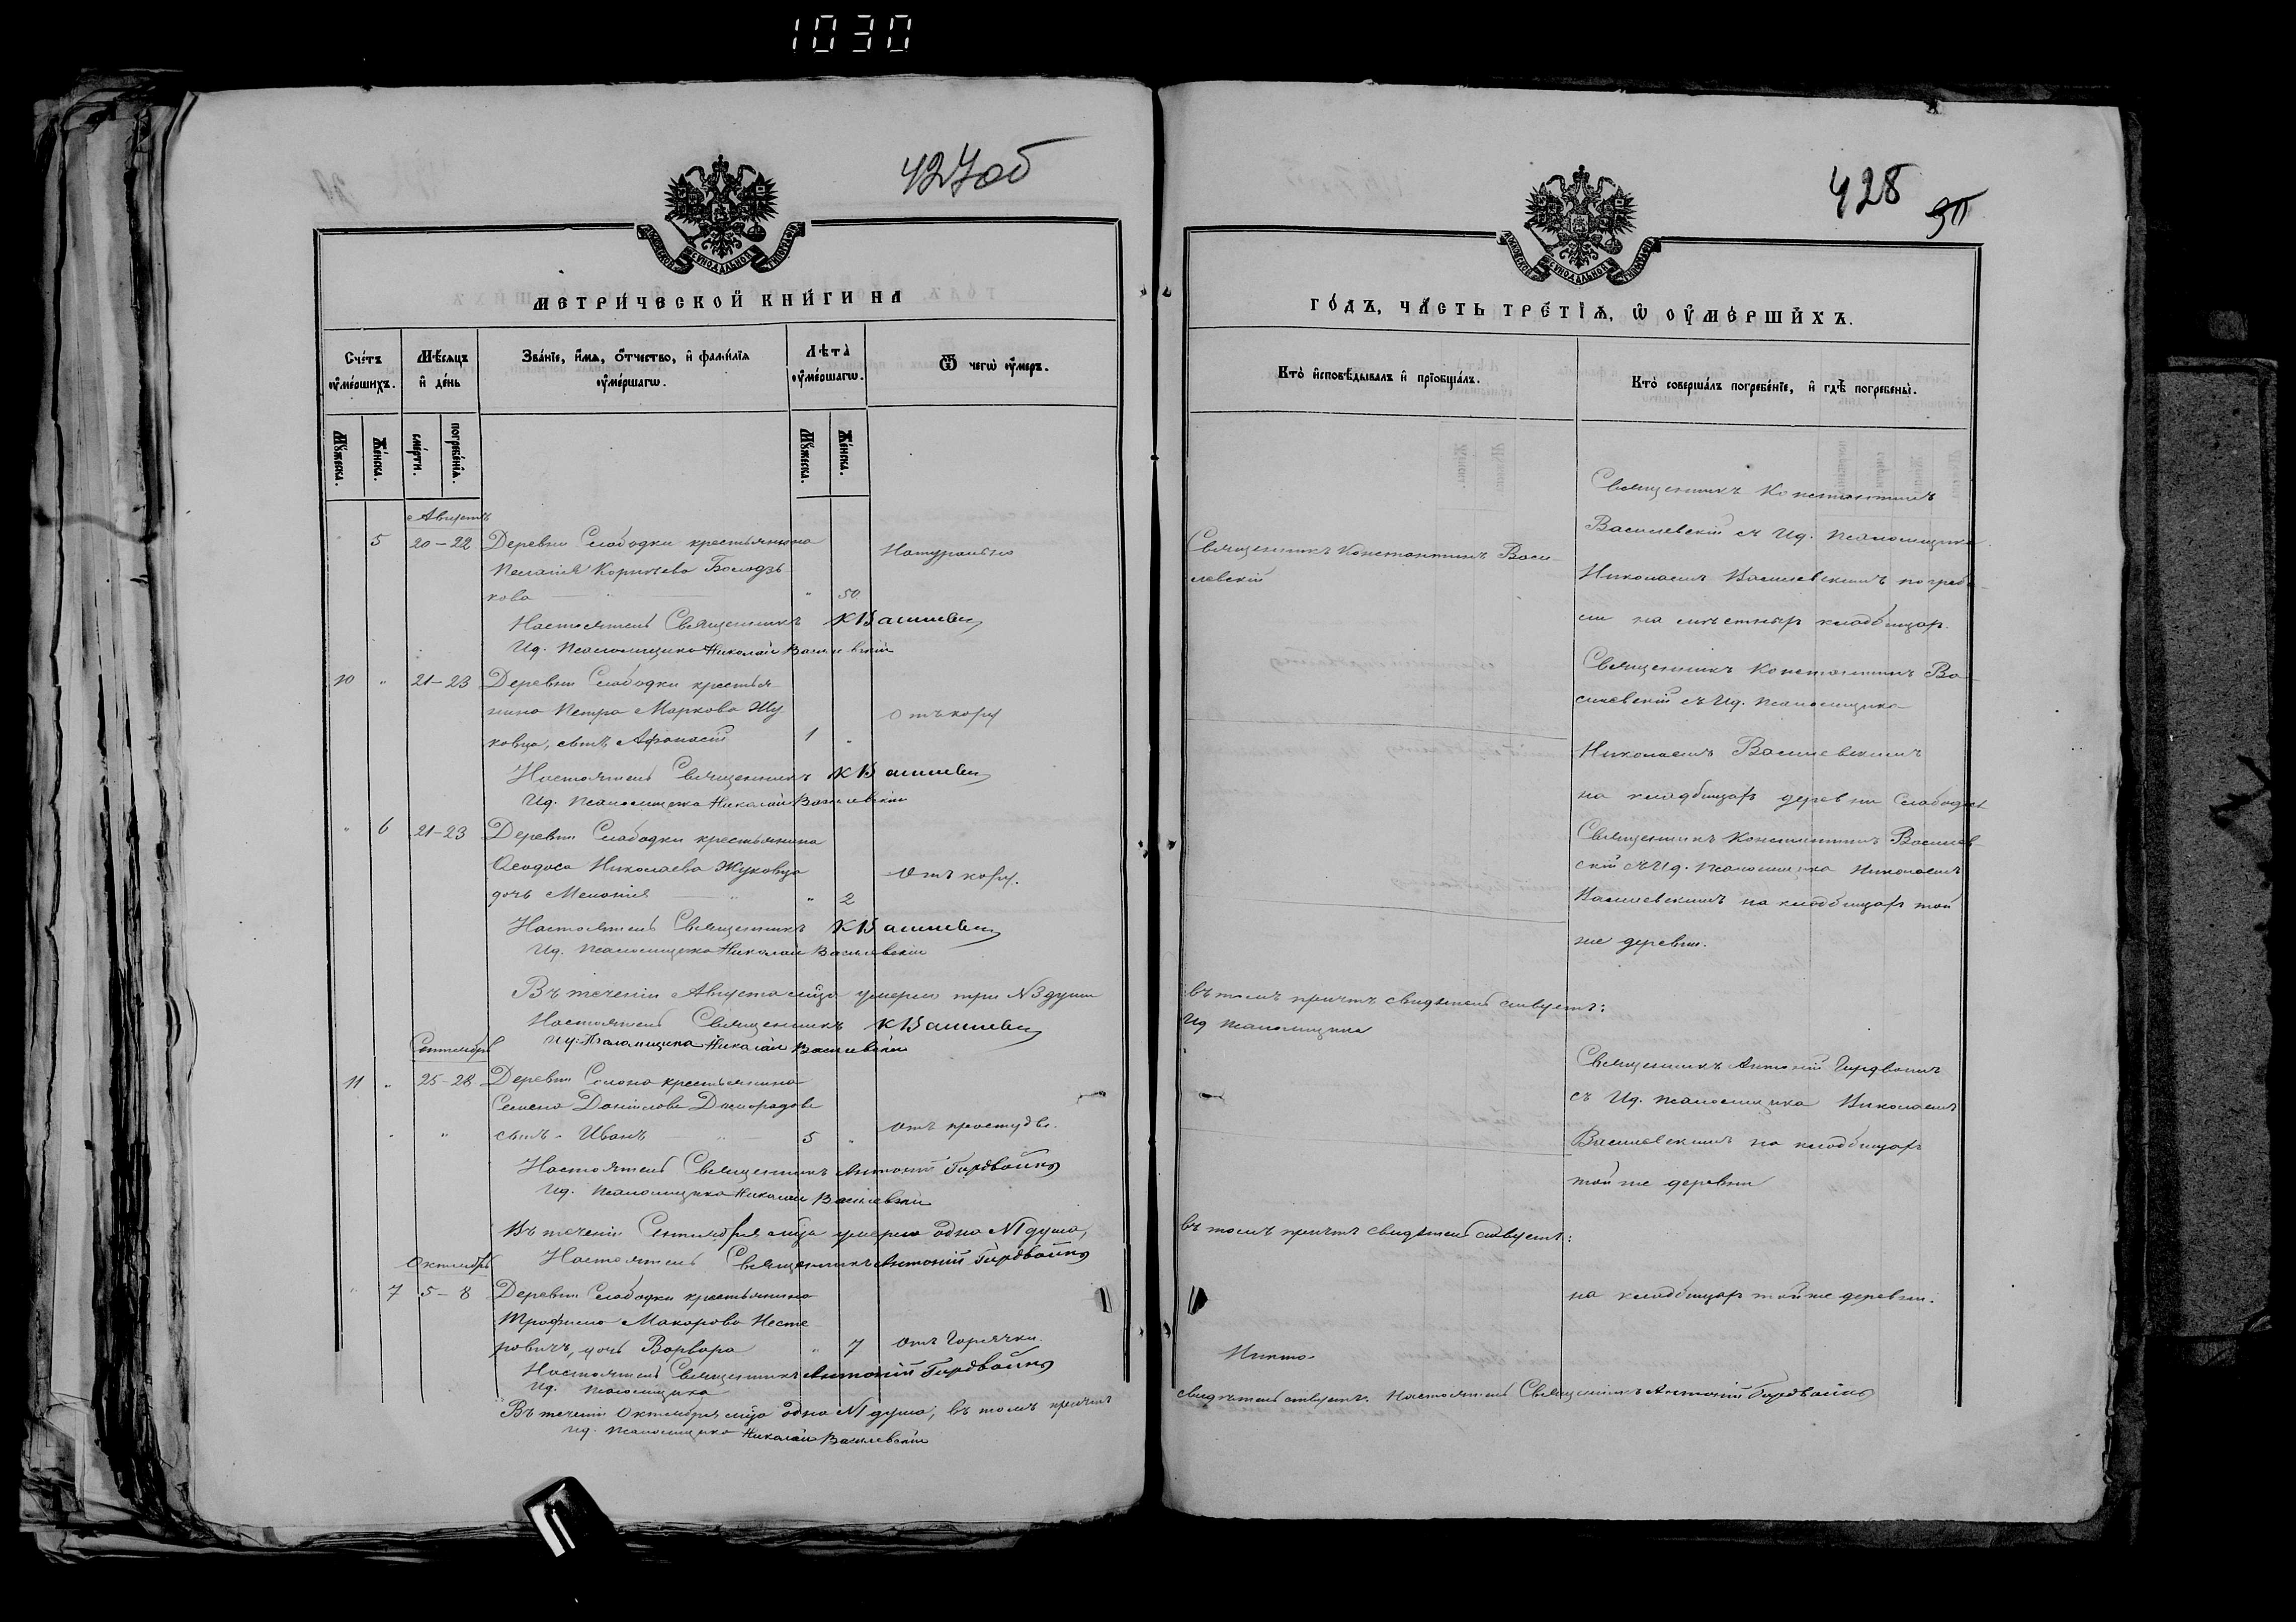 1030
427об
МЕТРИ́ЧЕСКОЙ КНИ́ГИ НА
Сче́тъ оу҆ме́ршихъ.
Мѣ́сяцъ и҆ де́нь
Зва́нїе, и҆́мѧ, ѻ҆́тчество, и҆ фами́лїѧ оу҆ме́ршагѡ.
Лѣ́та̀ оу҆ме́ршагѡ.
Ѿ чегѡ̀ оу҆́меръ.
Мꙋ́жеска.
Же́нска.
сме́рти.
погребе́нїѧ.
Мꙋ́жеска.
Же́нска.
Августъ
" 5 20-22 Деревни Слободки крестьянина
Пелагія Корнѣева
кова " 50 Натурально
Настоятель Священникъ К Василевскій
Ид. Псаломщика Николай Василевскій
10 " 21-23 Деревни Слободки крестья-
нина Петра Маркова Жу
ковца, сынъ Афанасій 1 " Отъ кору
Настоятель Священникъ К Василевскій
Ид. Псаломщика Николай Василевскій
" 6 21-23 Деревни Слободки крестьянина
Ѳеодоса Николаева Жуковца
дочь Меланія " 2 Отъ кору.
Настоятель Священникъ К Василевскій
Ид. Псаломщика Николай Василевскій
Въ теченіи Августа мѣца умерло три №3 души
Настоятель Священникъ К Василевскій
Ид. Псаломщика Николай Василевскій
Сентябрь
11 " 25-28 Деревни крестьянина
Семена Данилова
сынъ Иванъ 5 " Отъ простуды.
Настоятель Священникъ Антоній Гирдвойнъ
Ид. Псаломщика Николай Василевскій
Въ теченіи Сентября мѣца умерла одна №1 душа,
Настоятель Священникъ Антоній Гирдвойнъ
Октябрь
" 7 5-8 Деревни Слободки крестьянина
Трофима Макарова Несте
ровичъ, дочь Варвара " 7 Отъ Горячки.
Настоятель Священникъ Антоній Гирдвойнъ
Ид. Псаломщика
Въ теченіи Октября мѣца одна №1 душа, въ томъ причтъ
Ид. Псаломщика Николай Василевскій
428
ГО́ДЪ, ЧА́СТЬ ТРЕ́ТЇѦ, Ѡ҆ ОУ҆МЕ́РШИХЪ.
Кто̀ и҆сповѣ́дывалъ и҆ прїѡбща́лъ.
Кто̀ соверша́лъ погребе́нїе, и҆ гдѣ̀ погребены̀.
Священникъ Константинъ Васи-
левскій
Священникъ Константинъ
Василевскій съ Ид. Псаломщика
Николаемъ Василевскимъ погреб-
ли на мѣстныхъ кладбищахъ.
Священникъ Константинъ Ва-
силевскій съ Ид. Псаломщика
Николаемъ Василевскимъ
на кладбищахъ деревни Слободки
Священникъ Константинъ Василев-
скій съ Ид. Псаломщика Николаемъ
Василевскимъ на кладбищахъ той
же деревни.
въ томъ причтъ свидѣтельствуетъ:
Ид Псаломщика
Священникъ Антоній Гирдвоинъ
съ Ид. Псаломщика Николаемъ
Василевскимъ на кладбищахъ
той же деревни
въ томъ причтъ свидѣтельствуетъ:
на кладбищахъ той же деревни.
Никто
свидѣтельствуетъ. Настоятель Священникъ Антоній Гирдвойнъ